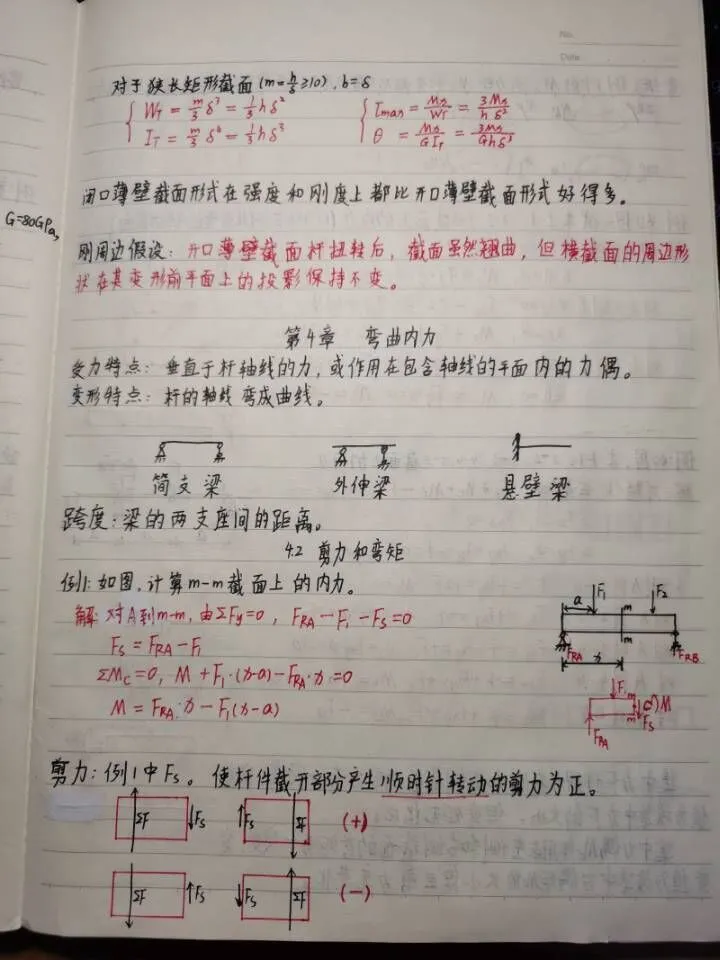 No.
Date
对于狭长矩形截面(m=h/δ≥10), b=δ
W_T = m/3 δ³ = 1/3 hδ²    τmax = Mn/W_T = 3Mn/hδ²
I_T = m/3 δ⁴ = 1/3 hδ³    θ = Mn/GI_T = 3Mn/Ghδ³
闭口薄壁截面形式在强度和刚度上都比开口薄壁截面形式好得多。
G=80GPa,
刚周边假设：开口薄壁截面杆扭转后，截面虽然翘曲，但横截面的周边形
状在其变形前平面上的投影保持不变。
第4章 弯曲内力
受力特点：垂直于杆轴线的力，或作用在包含轴线的平面内的力偶。
变形特点：杆的轴线弯成曲线。
简支梁 外伸梁 悬壁梁
跨度：梁的两支座间的距离。
4.2 剪力和弯矩
例1：如图，计算m-m截面上的内力。
解：对A到m-m，由ΣFy=0，F_RA-F₁-F_S=0
F_S=F_RA-F₁
ΣM_C=0, M+F₁·(x-a)-F_RA·x=0
M=F_RA·x-F₁(x-a)
a F₁ F₂ m m
F_RA F_RB
x
F₁ m C M
m F_S
F_RA
剪力：例1中F_S。使杆件截开部分产生顺时针转动的剪力为正。
ΣF ↓F_S ↑F_S ΣF (+)
ΣF ↑F_S ↓F_S ΣF (-)